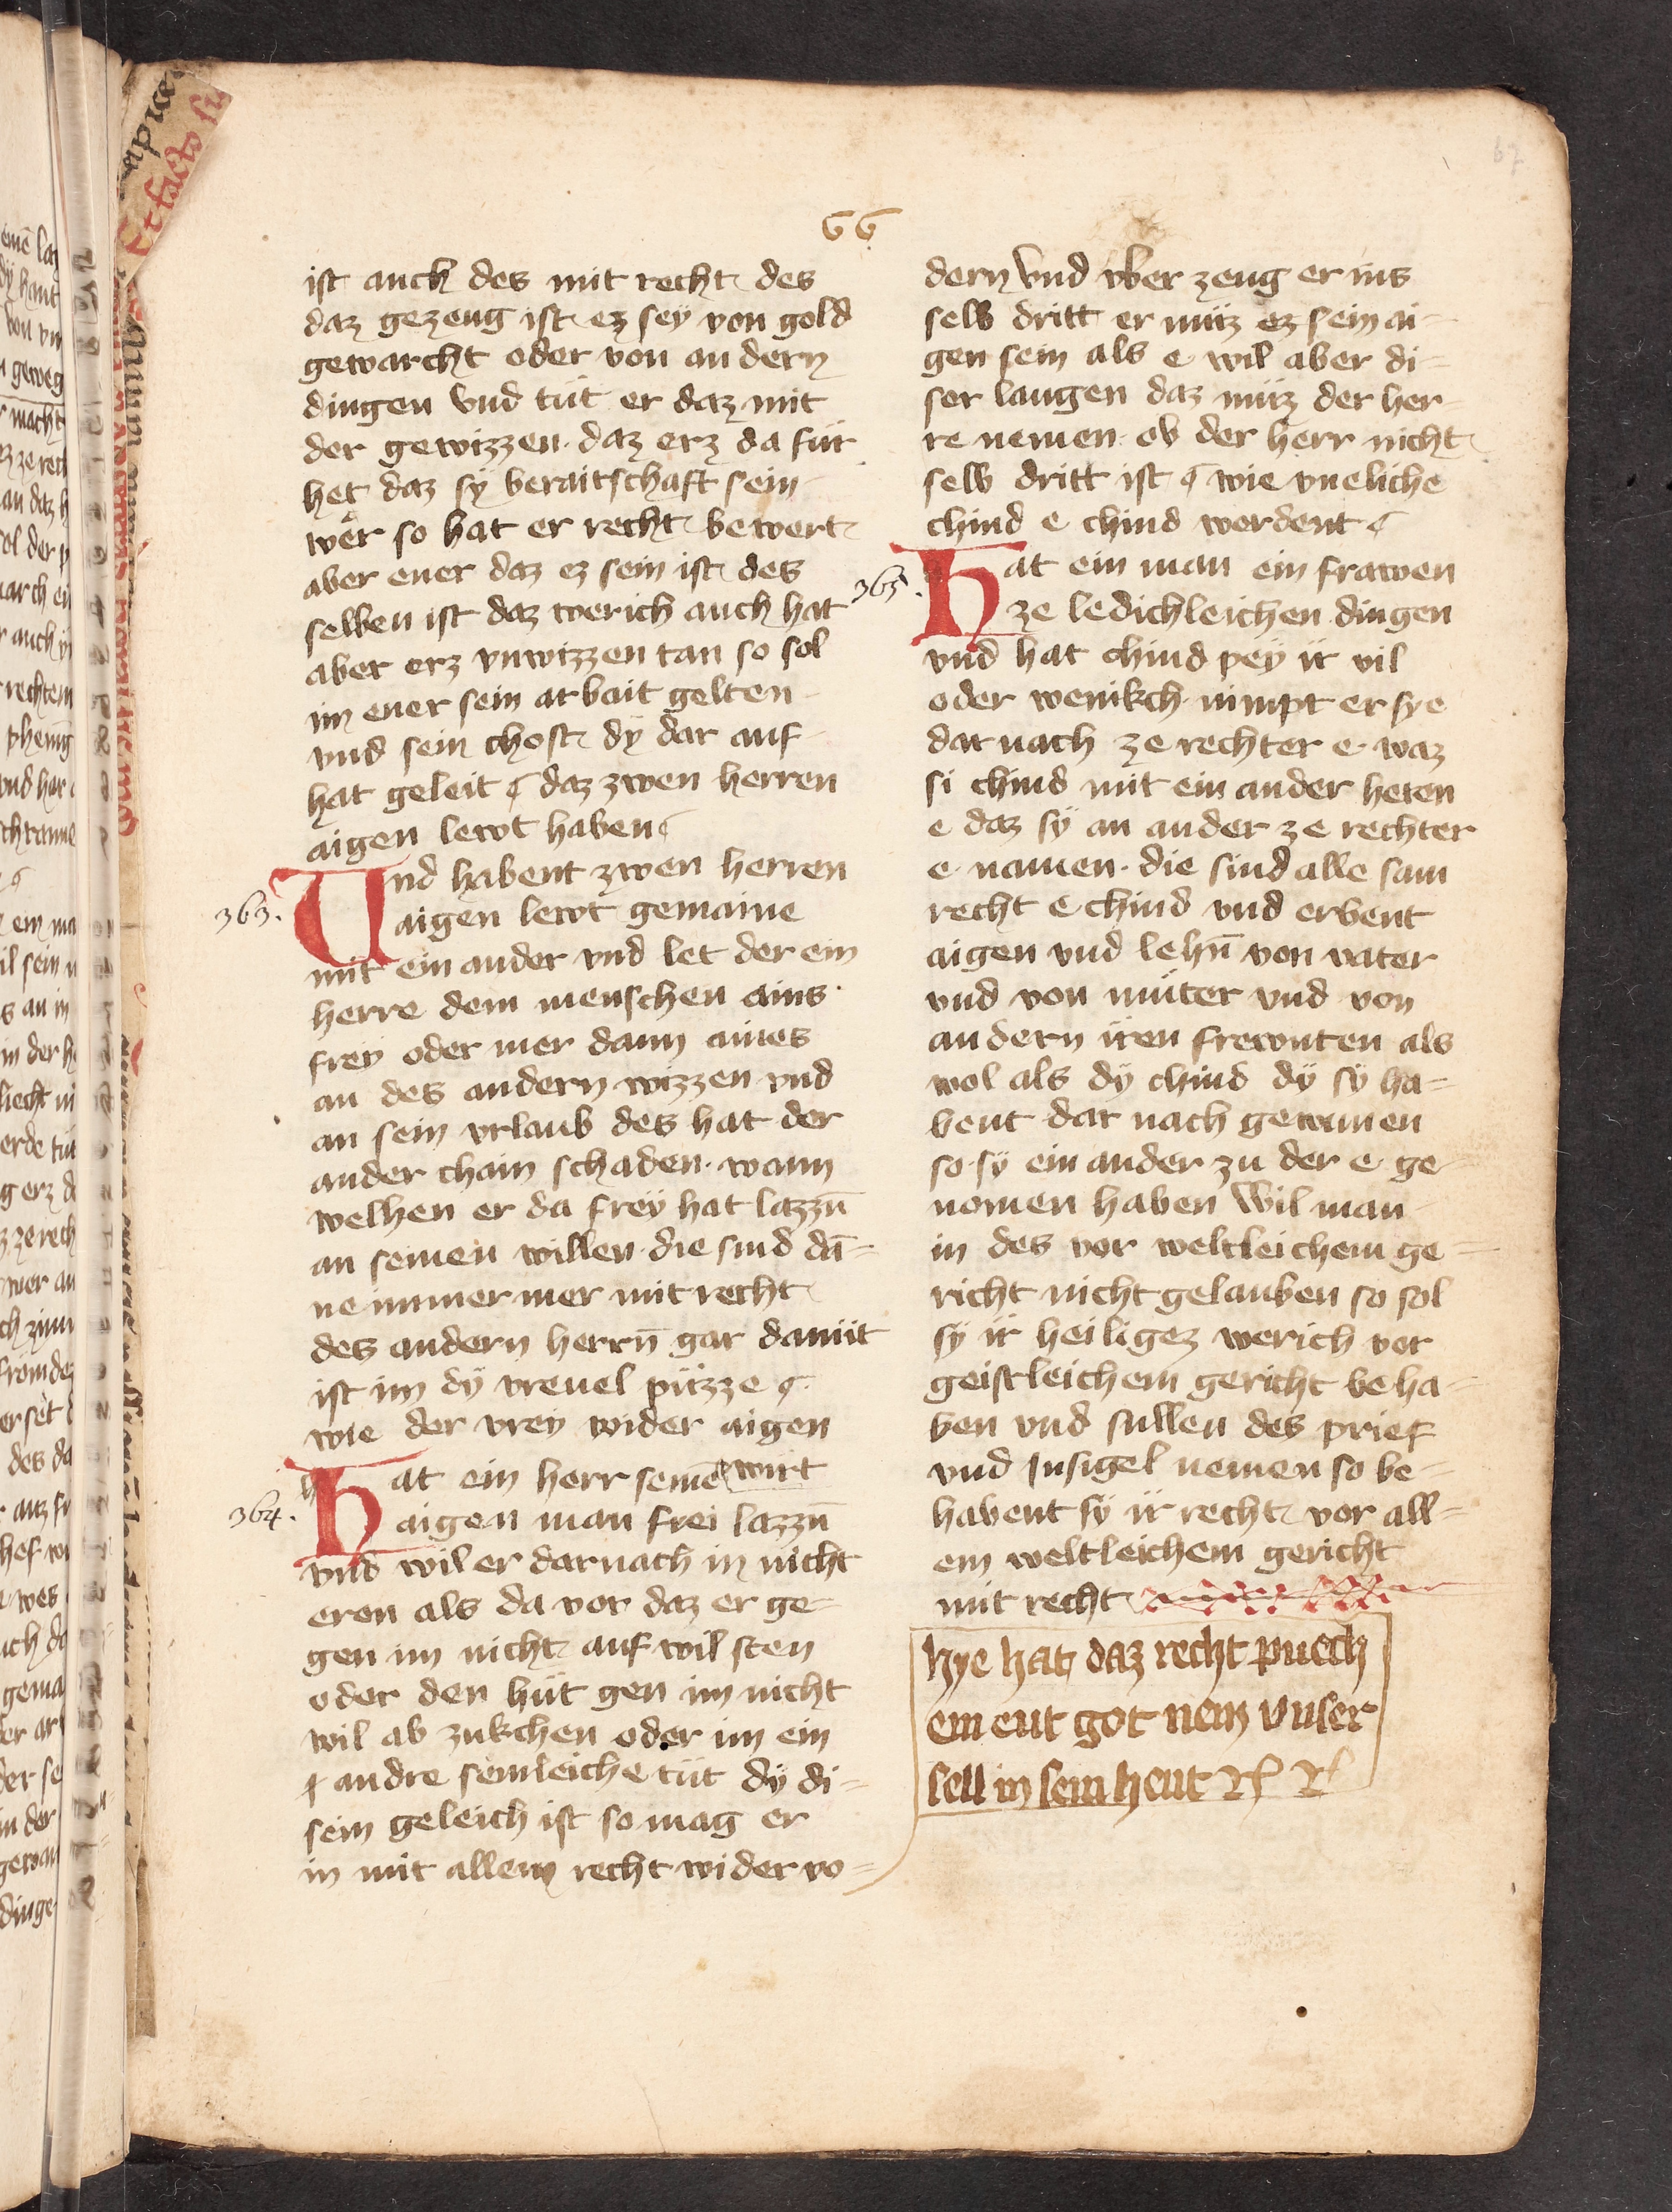 66
67
ist auch des mit recht des
daz gezeug ist ez sey von gold
gewarcht oder von andern
dingen vnd tüt er daz mit
der gewizzen · daz erz da für
het daz sÿ beraitschaft sein
wer so hat er recht bewert
aber ener daz ez sein ist des
selben ist daz werich auch hat
aber erz vnwizzen tan so sol
im ener sein arbait gelten
vnd sein chost dÿ dar auf
hat geleit ¶ daz zwen herren
aigen lewt haben
363.
Vnd habent zwen herren
aigen lewt gemaine
mit ein ander vnd let der ein
herre dem menschen ains
freÿ oder mer dann aines
an des andern wizzen vnd
an sein vrlaub des hat der
ander chain schaden · wann
welhen er da freÿ hat lazzn̄
an seinen willen · die sind dā=
ne immer mer mit recht
des andern herrn̄ gar damüt
ist im dÿ vreuel püzze ¶
wie der vreÿ wider aigen
wirt
364.
Hat ein herr seinē
aigen man frei lazzn̄
vnd wil er darnach in nicht
eren als da vor daz er ge=
gen im nicht auf wil sten
oder den hüt gen im nicht
wil ab zukchen oder im ein
andre sèmleiche tüt dÿ di=
sem geleich ist so mag er
in mit allem recht wider vo=
dern vnd vber zeug er ins
selb dritt er müz ez sein ai=
gen sein als e wil aber di=
ser laugen daz müz der her=
re nemen · ob der herr nicht
selb dritt ist ¶ wie vneliche
chind e chind werdent ¶
365.
Hat ein man ein frawen
ze ledichleichen dingen
vnd hat chind peÿ ir vil
oder wenikch · nimpt er sye
dar nach ze rechter e · waz
si chind mit ein ander heten
e daz sÿ an ander ze rechter
e namen · die sind alle sam
recht e chind vnd erbent
aigen vnd lehn̄ von vater
vnd von müter vnd von
andern iren frewnten als
wol als dÿ chind dÿ sÿ ha=
bent dar nach gewunnen
so sÿ ein ander zu der e ge
nomen haben Wil man
in des vor weltleichem ge=
richt nicht gelauben so sol
sÿ ir heiligez werich vor
geistleichem gericht beha=
ben vnd sullen des prief
vnd Insigel nemen so be=
habent sÿ ir recht vor all=
em weltleichem gericht
mit recht
hye hat daz recht puech
ein ent got nem vnser
sell in sein hent